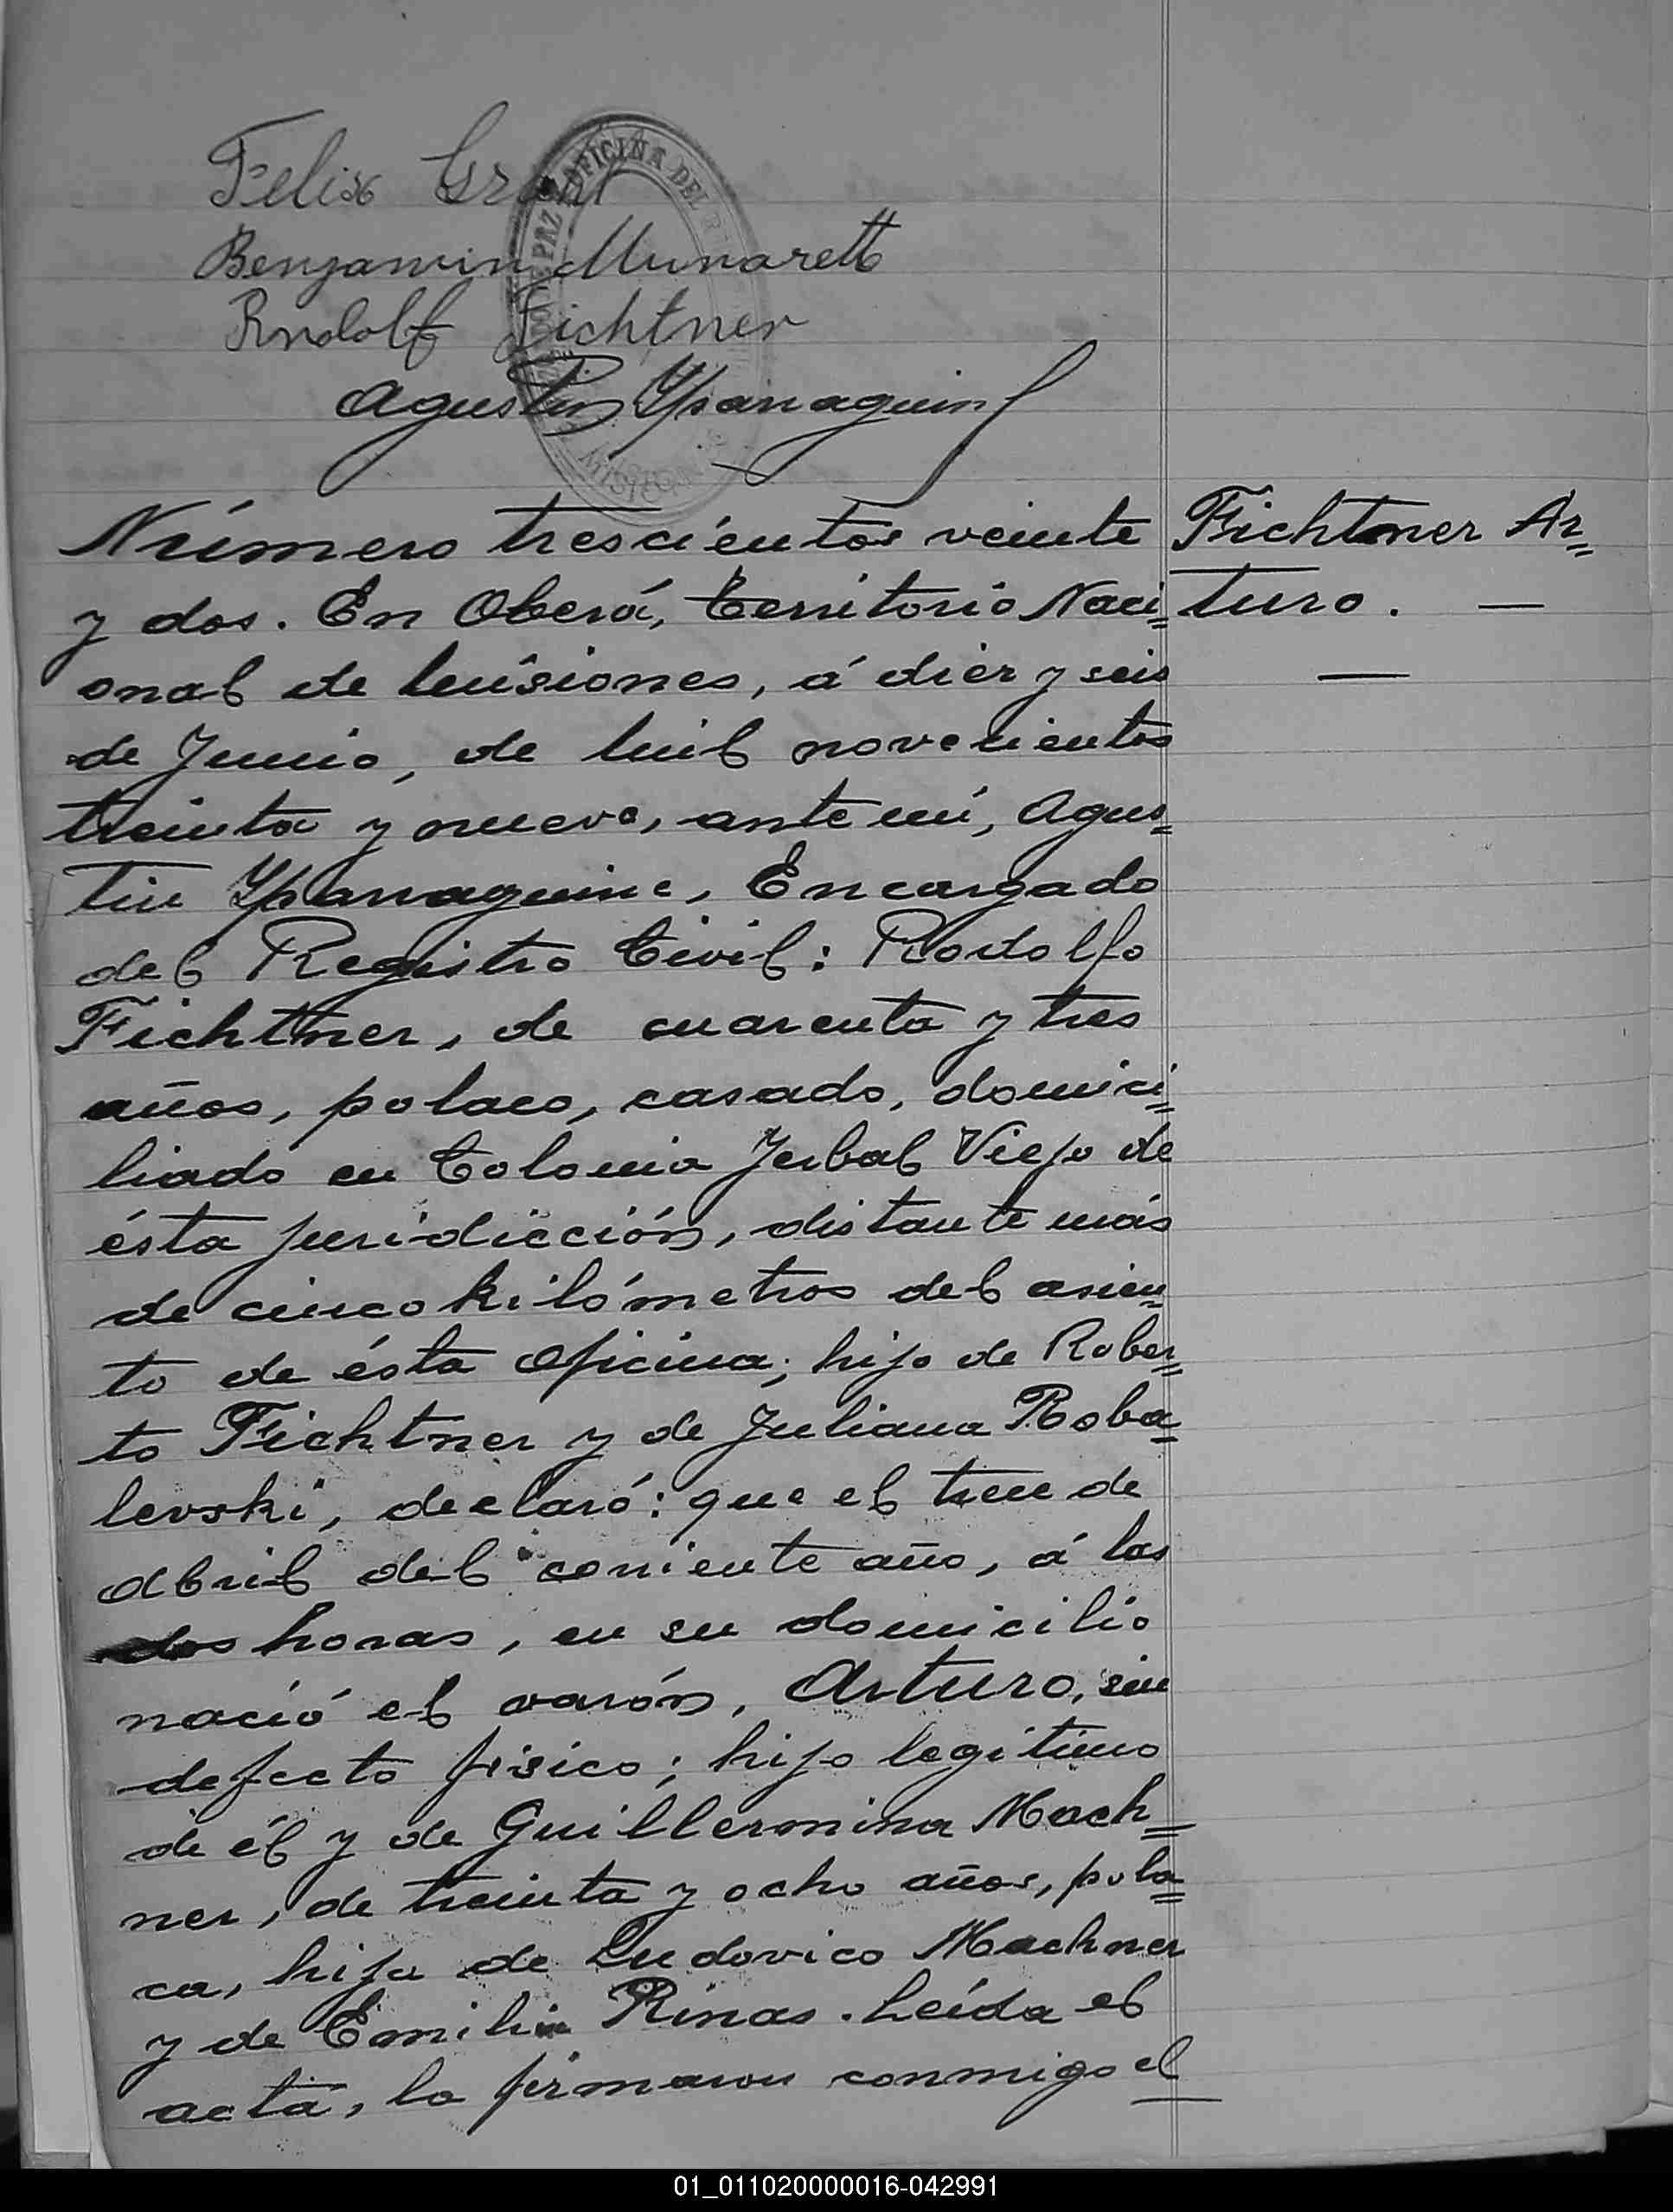 Felix
Benjamin Munarett
Rudolf Fichtner
OFICINA DEL
PAZ
MISIONES
Agustin Yparraguirre
Número trescientos veinte
y dos. En Oberá, Territorio Naci=
onal de Misiones, á diez y seis
de Junio, de mil novecientos
treinta y nueve, ante mí, Agus=
tin Yparraguirre, Encargado
del Registro Civil: Rodolfo
Fichtner, de cuarenta y tres
años, polaco, casado, domici=
liado en Colonia Yerbal Viejo de
ésta juridicción, distante más
de cinco kilómetros del asien=
to de ésta Oficina; hijo de Rober=
to Fichtner y de Juliana Roba=
levski, declaró: que el trece de
Abril del corriente año, á las
dos horas, en su domicilio
nació el varón, Arturo, sin
defecto fisico; hijo legitimo
de él y de Guillermina Mach=
ner, de treinta y ocho años, pola=
ca, hija de Ludovico Machner
y de Emilia Rinas. Leída el
acta, la firmaron conmigo el
Fichtner Ar=
turo. —
—
01_011020000016-042991